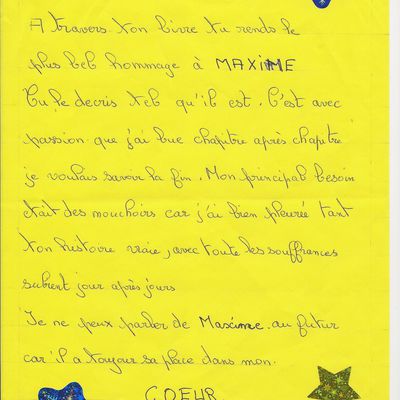 A travers ton livre tu rends le
plus bel hommage à MAXIME
Tu le decris tel qu'il est. C'est avec
passion que j'ai lue chapitre après chapitre
je voulais savoir la fin. Mon principal besoin
etait des mouchoirs car j'ai bien pleurée tant
ton histoire vraie, avec toute les souffrances
subient jour après jours
Je ne peux parler de Maxime au futur
car il a toujour sa place dans mon.
COEUR